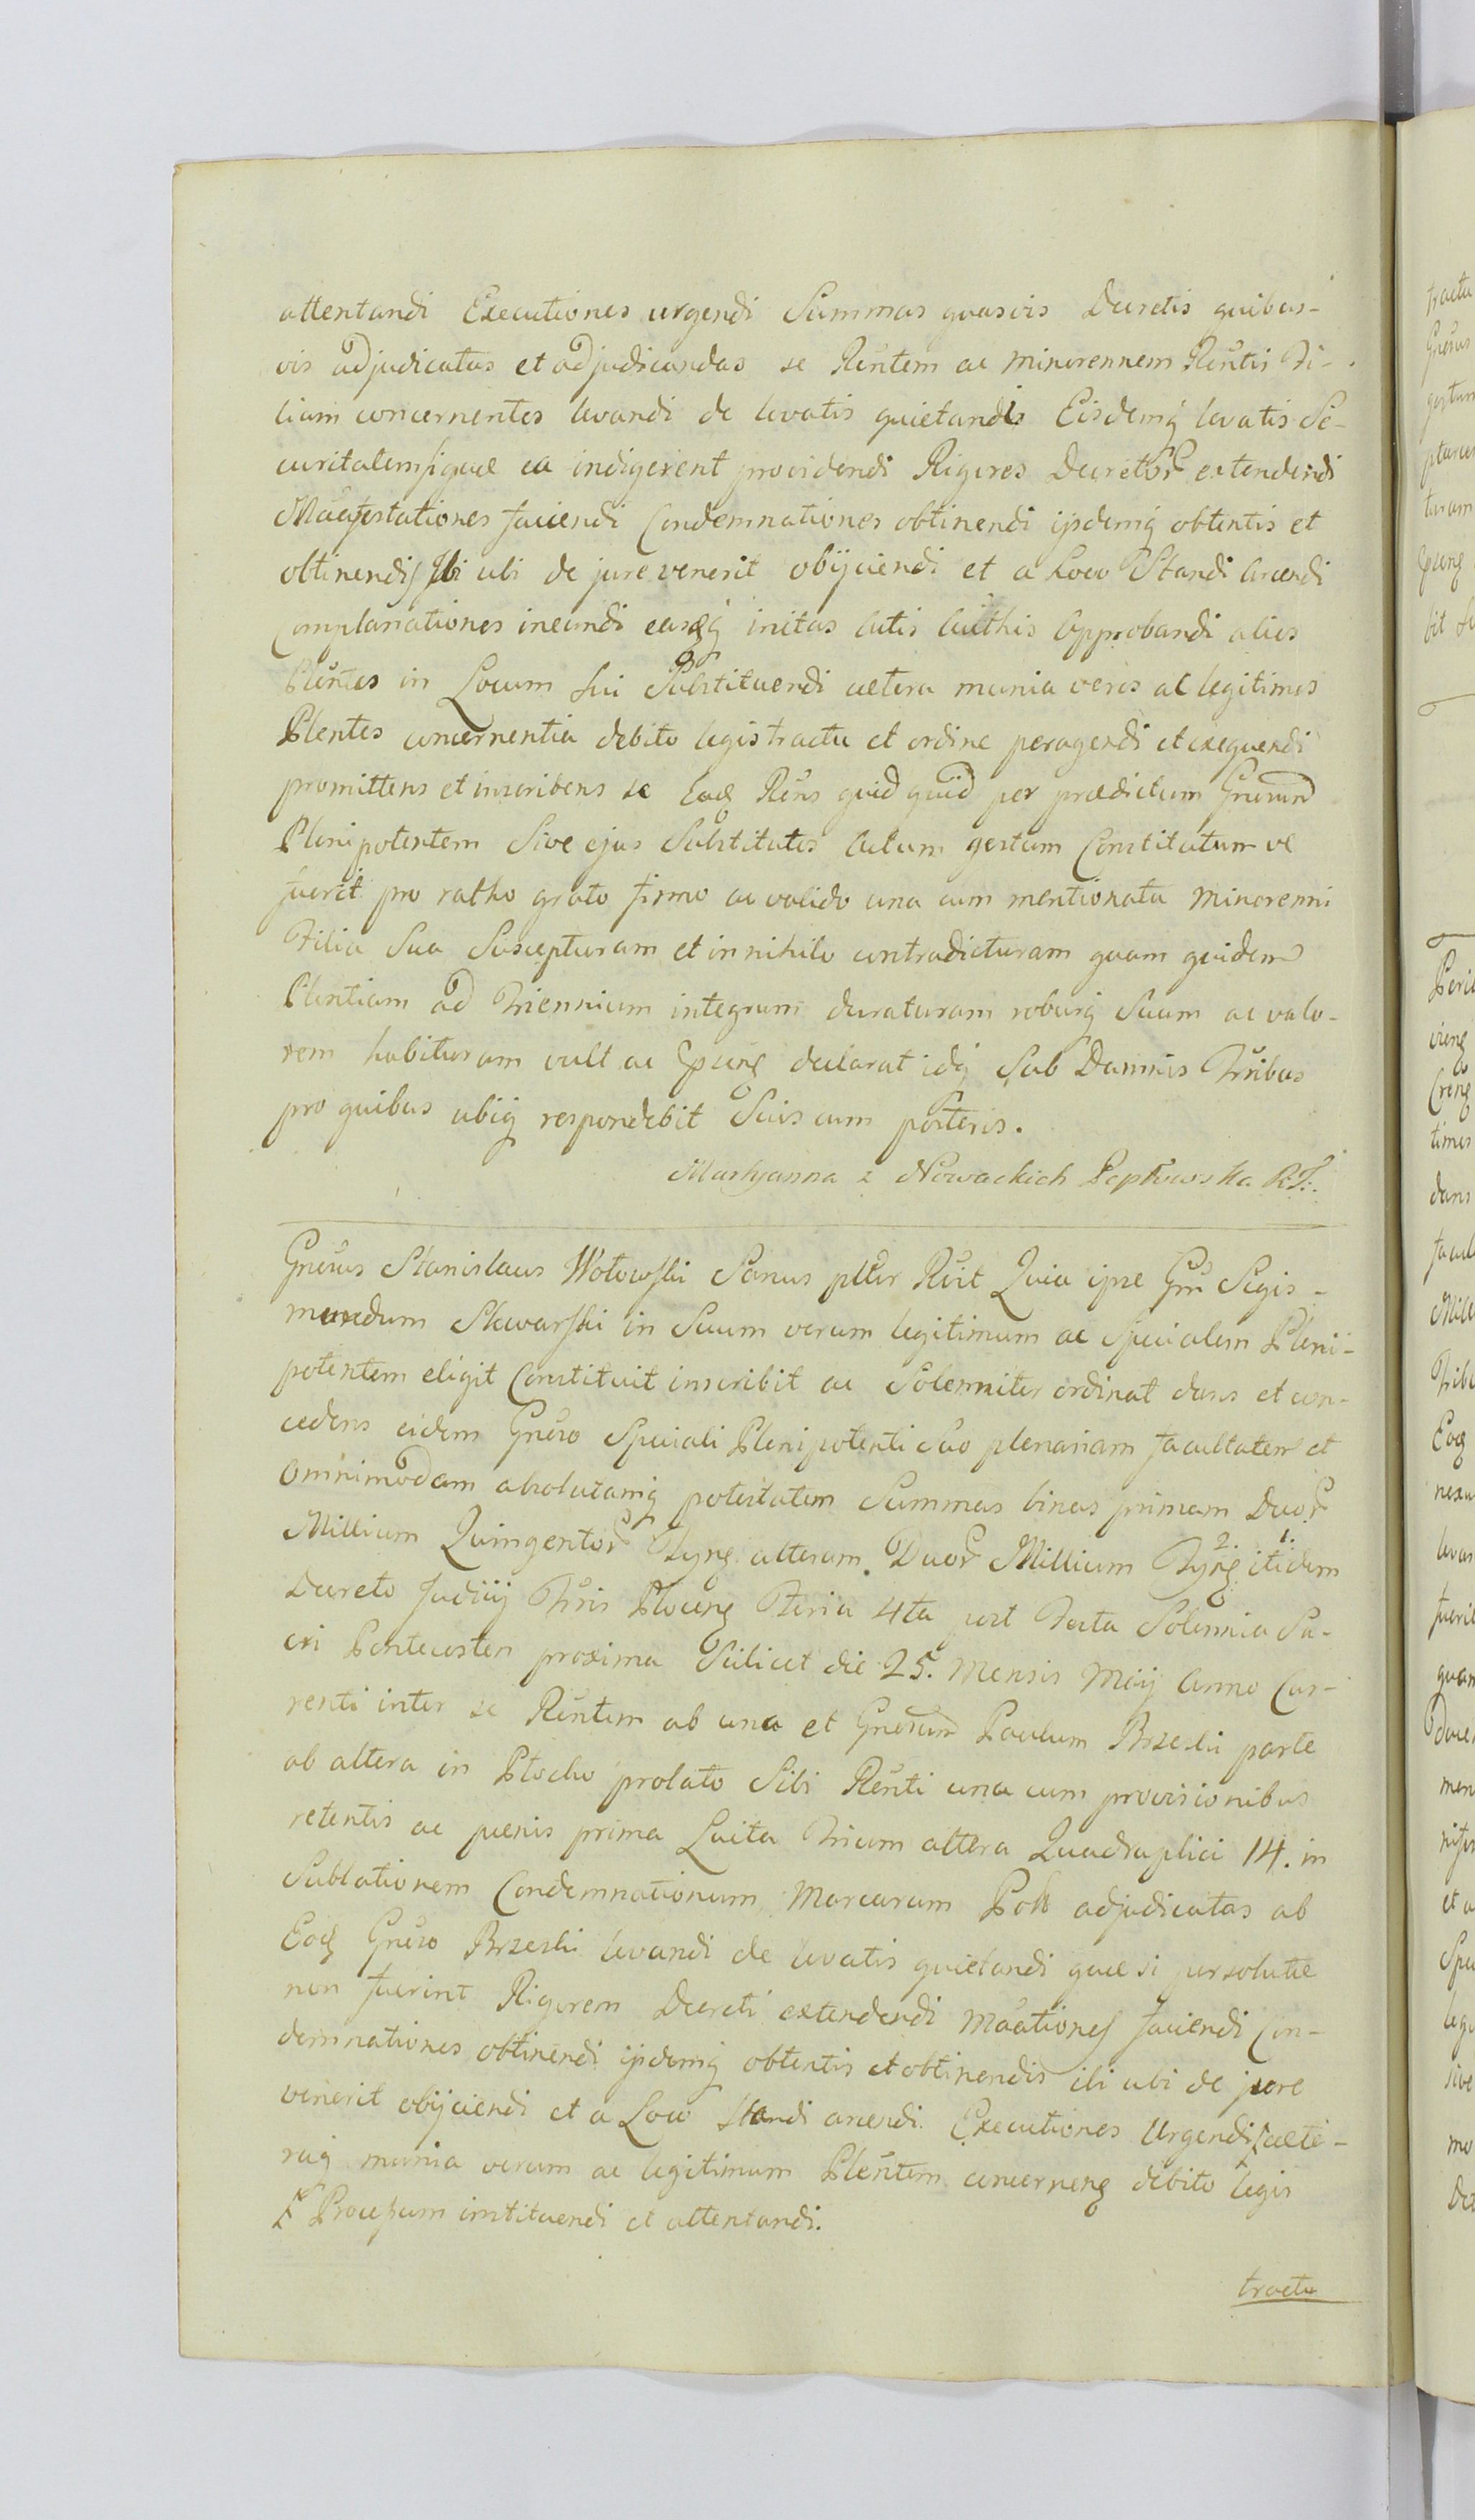 attentandi Executiones urgendi Summas quasvis Decretis quibus-
vis adjudicatas et adjudicandas se Rentem ac minorennem Rentis Fi-
liam concernentes levandi de levatis quietandis Eisdemq levatis Se-
curitatem siquae ea indigerent providendi Rigores Decretor extendendi
Maãfestationes faciendi Condemnationes obtinendi ijsdemq obtentis et
obtinendis Ibi ubi de jure venerit obijciendi et a Loco Standi Arcendi
Complanationes ineundi easq initas Actis Authis Approbandi alios
Plentes in Locum sui Substituendi caetera munia veros ac legitimos
Plentes concernentia debito legis tractu et ordine peragendi et exequendi
promittens et inscribens se Eadg Rens quid quid per praedictum Gnerum
Plenipotentem Sive ejus Substitutos Actum gestum Constitutum ve
fuerit pro ratho grato firmo ac valido una cum mentionata minorenni
Filia Sua Suscepturam et in nihilo contradicturam quam quidem
Plentiam ad Triennium integrum duraturam roburq Suum ac valo-
rem habituram vult ac Epung declarat idq Sub Damnis Tribus
pro quibus ubiq respondebit Suis cum posteris.
Maryanna z Nowackich Pepłowska R.T:.
Gnerus Stanislaus Wołowski Sanus pltr Rnit Quia ipse Gm Segis-
mundum Skwarski in Suum verum legitimum ac Specialem Pleni-
potentem eligit Constituit inscribit ac Solemniter ordinat dans et con-
cedens eidem Gnero Speciali Plenipotenti Suo plenariam facultatem et
Omnimodam absolutamq potestatem Summas binas primam Duor
Millium Quingentor Tyng alteram Duor Millium Tyng 2. itidem 1.
Decreto Judicij Tris Ploceng Feria 4ta post Festa Solennia Sa-
cri Pentecosten proxima Scilicet die 25. Mensis Maij Anno Cur-
renti inter se Rentem ab una et Gnerum Paulum Brzeski parte
ab altera in Plocko prolato Sibi Renti una cum provisionibus
retentis ac paenis prima Luita Trium altera Quadruplici 14. in
Sublationem Condemnationum Marcarum Poł adjudicatas ab
Eodg Gnero Brzeski levandi de levatis quietandi quae si persolutae
non fuerint Rigorem Decreti extendendi Maãtiones faciendi Con-
demnationes obtinendi ijsdemq obtentis et obtinendis ibi ubi de jure
venerit obijciendi et a Loco Standi arcendi Executiones Urgendi caete-
raq munia verum ac legitimum Plentem concerneng debito legis
Processum instituendi et attentandi.
tractu